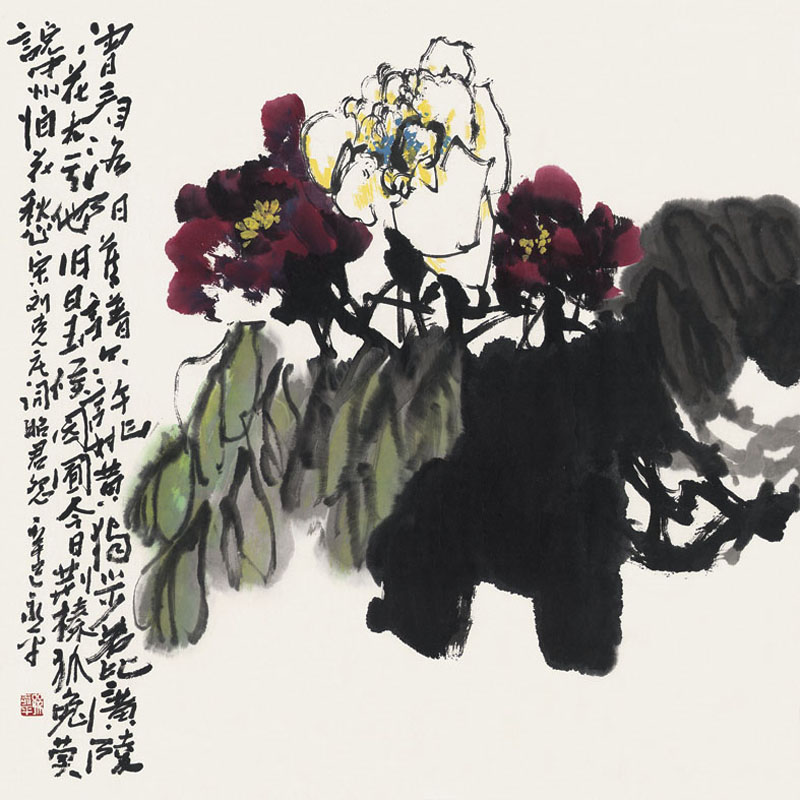 曾看洛阳舊譜只許姚黄獨步若比廣陵
花太亏他旧日王侯园圃今日荆榛狐兔莫
說中州怕花愁宋刘克庄词昭君怨辛巳